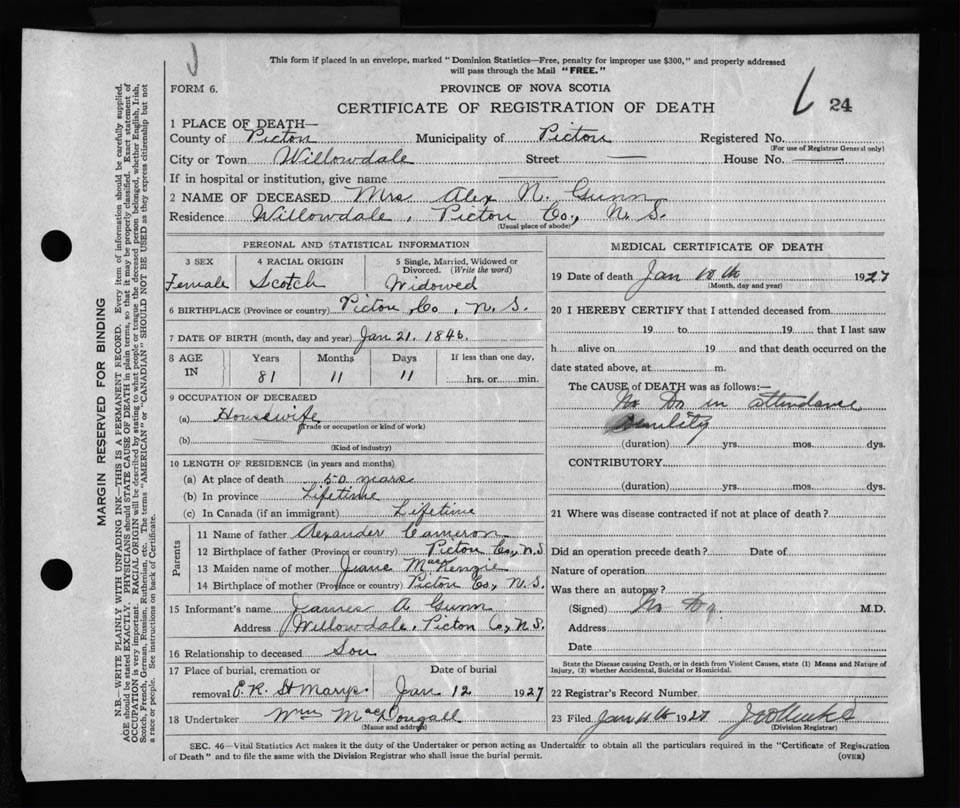 This form if placed in an envelope, marked "Dominion Statistics—Free, penalty for improper use $300," and properly addressed
will pass through the Mail "FREE."
FORM 6.
PROVINCE OF NOVA SCOTIA
24
CERTIFICATE OF REGISTRATION OF DEATH
1 PLACE OF DEATH—
County of Pictou Municipality of Pictou Registered No.
(For use of Registrar General only)
City or Town Willowdale Street — House No. —
If in hospital or institution, give name
2 NAME OF DECEASED Mrs Alex N. Gunn
Residence Willowdale, Pictou Co., N. S.
(Usual place of abode)
PERSONAL AND STATISTICAL INFORMATION
3 SEX 4 RACIAL ORIGIN 5 Single, Married, Widowed or
Divorced. (Write the word)
Female Scotch Widowed
6 BIRTHPLACE (Province or country) Pictou Co, N. S.
7 DATE OF BIRTH (month, day and year) Jan 21. 1846.
8 AGE Years Months Days If less than one day,
IN 81 11 11 hrs. or min.
9 OCCUPATION OF DECEASED
(a) Housewife
(Trade or occupation or kind of work)
(b)
(Kind of industry)
10 LENGTH OF RESIDENCE (in years and months)
(a) At place of death 50 years
(b) In province Lifetime
(c) In Canada (if an immigrant) Lifetime
Parents
11 Name of father Alexander Cameron
12 Birthplace of father (Province or country) Pictou Co, N.S
13 Maiden name of mother Jane MacKenzie
14 Birthplace of mother (Province or country) Pictou Co, N.S.
15 Informant's name James A Gunn
Address Willowdale, Pictou Co, N.S.
16 Relationship to deceased Son
17 Place of burial, cremation or Date of burial
removal E. R. St Marys. Jan 12 1927
18 Undertaker Wm MacDougall
(Name and address)
MEDICAL CERTIFICATE OF DEATH
19 Date of death Jan 10th 1927
(Month, day and year)
20 I HEREBY CERTIFY that I attended deceased from
19 to 19 that I last saw
h alive on 19 and that death occurred on the
date stated above, at m.
The CAUSE of DEATH was as follows:—
No Dr in attendance
Senility
(duration) yrs. mos. dys.
CONTRIBUTORY
(duration) yrs. mos. dys.
21 Where was disease contracted if not at place of death?
Did an operation precede death? Date of
Nature of operation
Was there an autopsy?
(Signed) No Dr M.D.
Address
Date
State the Disease causing Death, or in death from Violent Causes, state (1) Means and Nature of
Injury, (2) whether Accidental, Suicidal or Homicidal.
22 Registrar's Record Number
23 Filed Jan 11th 1927
(Division Registrar)
SEC. 46—Vital Statistics Act makes it the duty of the Undertaker or person acting as Undertaker to obtain all the particulars required in the "Certificate of Registration
of Death" and to file the same with the Division Registrar who shall issue the burial permit. (OVER)
MARGIN RESERVED FOR BINDING
N.B.—WRITE PLAINLY WITH UNFADING INK—THIS IS A PERMANENT RECORD. Every item of information should be carefully supplied.
AGE should be stated EXACTLY. PHYSICIANS should STATE CAUSE OF DEATH in plain terms, so that it may be properly classified. Exact statement of
OCCUPATION is very important. RACIAL ORIGIN will be described by stating to what people or tongue the deceased person belonged, whether English, Irish,
Scotch, French, German, Russian, Ruthenian, etc. The terms "AMERICAN" or "CANADIAN" SHOULD NOT BE USED as they express citizenship but not
a race or people. See instructions on back of Certificate.